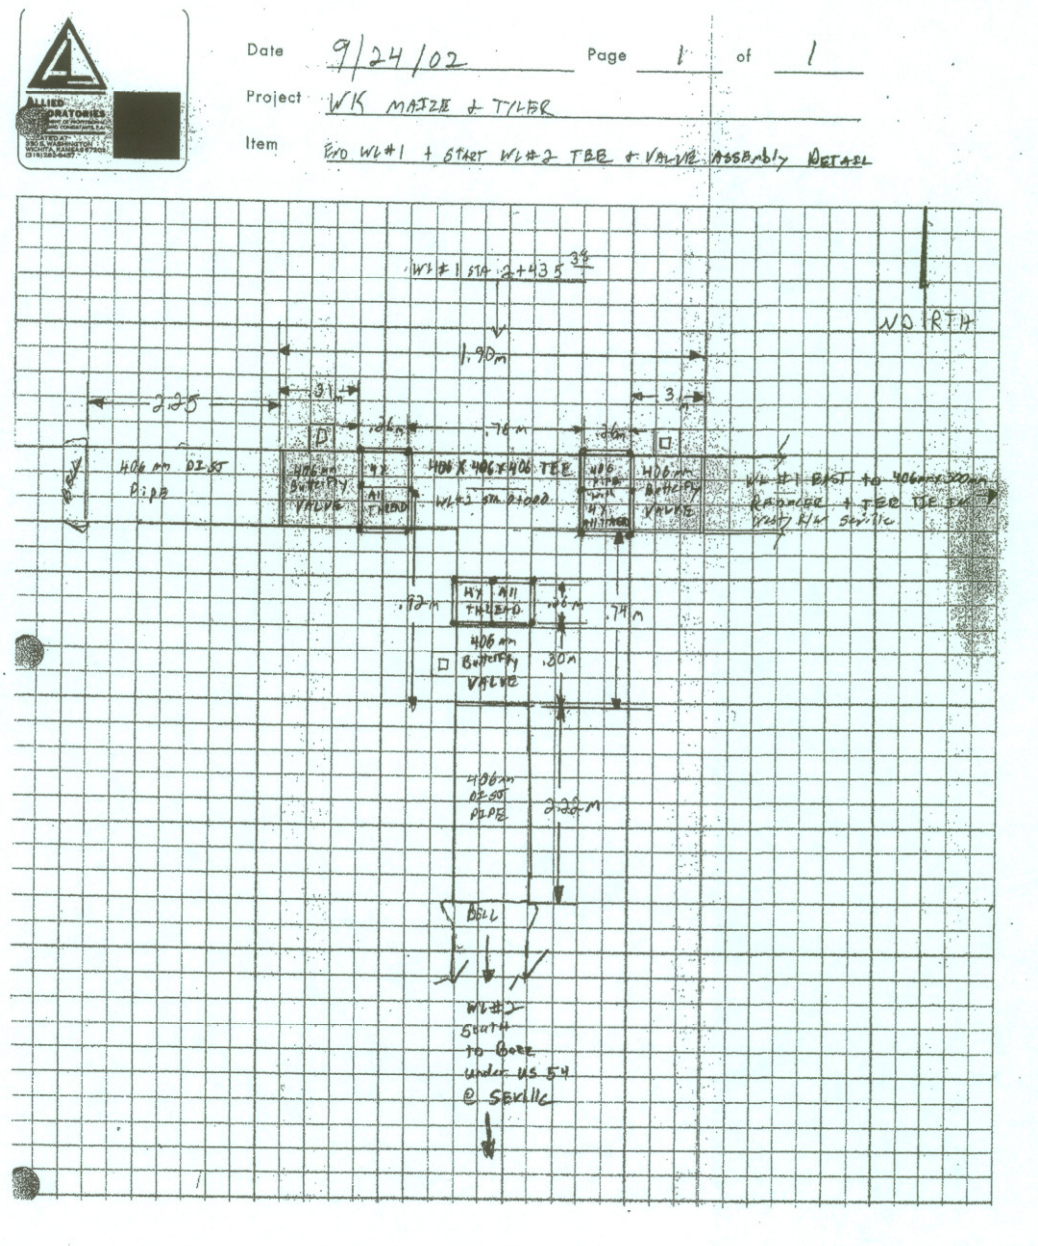 ALLIED
LABORATORIES
LOCATED AT
330 S. WASHINGTON
WICHITA, KANSAS 67202
Date 9/24/02 Page 1 of 1
Project WK MAIZE & TYLER
Item END WL#1 + START WL#2 TEE & VALVE ASSEMBLY DETAIL
WL#1 STA 2+435 34
NORTH
1.90m
2.25
.31m
.3 m
.26m
.76 m
.26m
BELL
406 mm DISJ
PIPE
406mm
Butterfly
VALVE
4X
All
THREAD
406 X 406 X 406 TEE
WL#2 STA 0+000
406
PIPE
with
4X
All THREAD
406mm
Butterfly
VALVE
WL #1 EAST to 406mm x 300mm
REDUCER + TEE TIE IN
West R/W Seville
.92m
4X All
THREAD
.26 m
.74 m
406 mm
Butterfly
VALVE
.20m
406mm
DISJ
PIPE
2.22 m
BELL
WL#2
South
to Bore
under US 54
@ SEVILLE